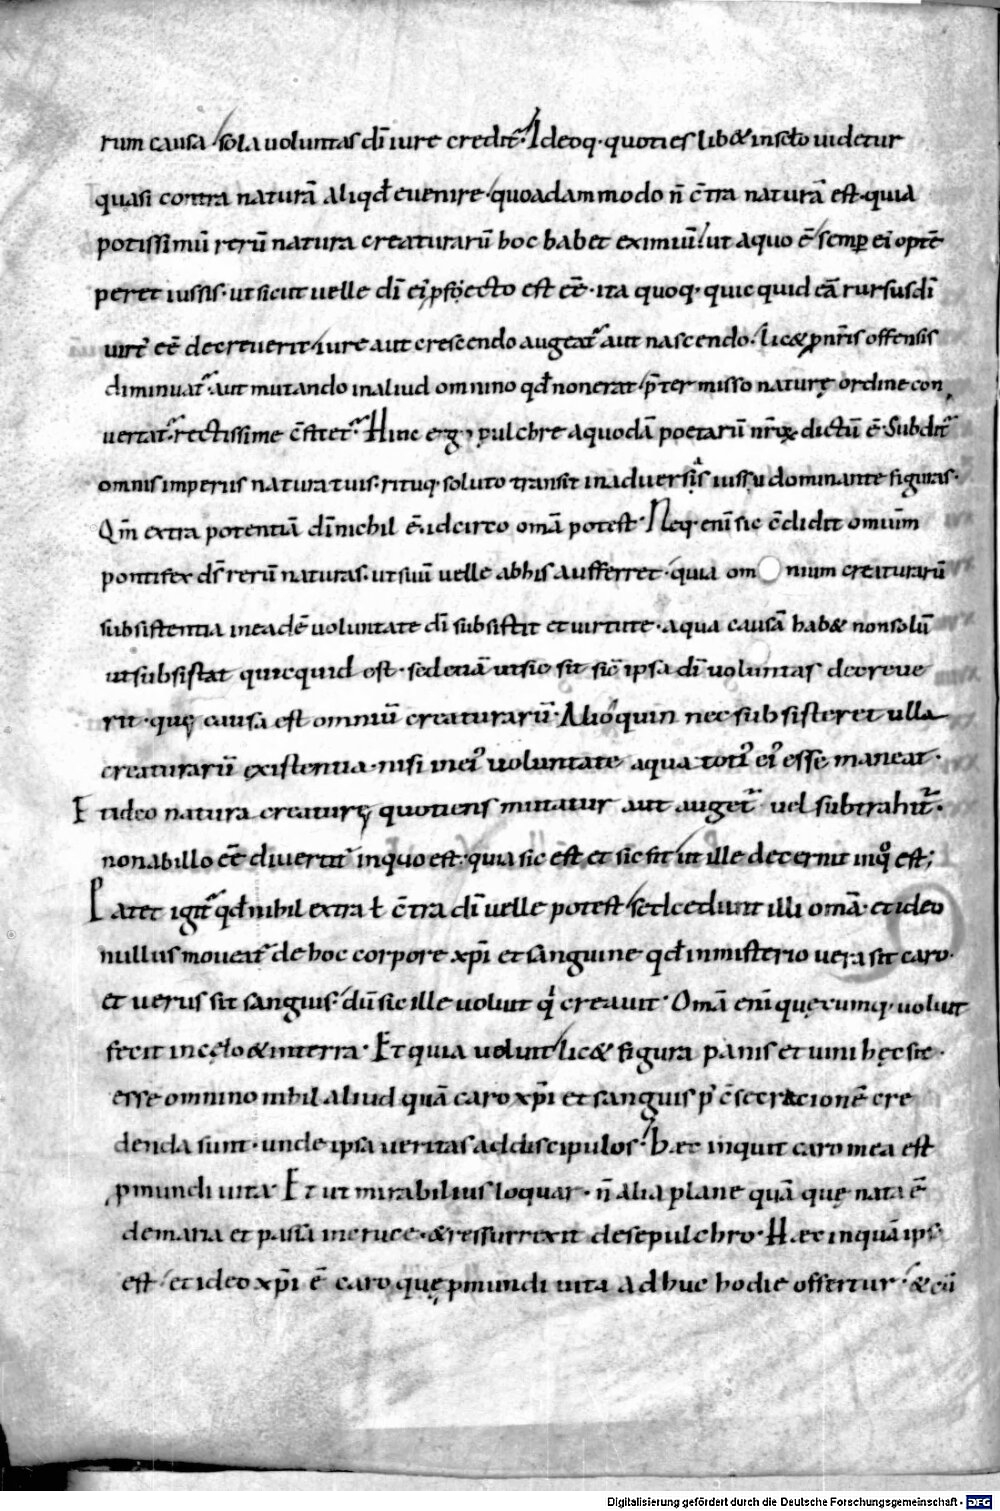 rum causa sola uoluntas dī iure credit᷑. Ideoq· quoties lib& inscł̄o uidetur
quasi contra naturā aliqđ euenire· quoadammodo n̄ c̄tra naturā est· quia
potissimū rerū natura creaturarū hoc habet eximiū· ut aquo ē semꝑ ei optē
peret iussis· ut sicut uelle dī ei ꝓfecto est eē· ita quoq· quicquid eā rursus dī
uirt᷒ eē decreuerit iure aut crescendo augeat᷑ aut nascendo· lic& ꝓ nr̄is offensis
diminuat᷑· aut mutando inaliud omnino qđ non erat p̄termisso naturę ordine con
uertat᷑· rectissime c̄stet᷑· Hinc ergo pulchre aquodā poetarū nr̄oꝝ dictū ē· Subdit᷑
omnis imperiis natura tuis· rituq· soluto transit inaduersas iussu dominante figuras·
Qm̄ extra potentiā dī nichil ē· idcirco om̄a potest· Neq· enī sic c̄didit omiūm
pontifex ds̄ rerū naturas· ut suū uelle abhis aufferret· quia omnium creaturarū
subsistentia ineadē uoluntate dī subsistit et uirtute· aqua causā hab& nonsolū
ut subsistat quicquid est· sed etiā ut sic sit sic̄ ipsa dī uoluntas decreue
rit· quę causa est omniū creaturarū· Alioquin nec subsisteret ulla
creaturarū existentia· nisi inei᷒ uoluntate aqua toti᷒ ei᷒ esse maneat·
Et ideo natura creaturę quotiens mutatur aut auget᷑ uel subtrahit᷑·
non abillo eē diuertit᷑ inquo est· quia sic est et sic sit ut ille decernit inqͦ est;
Patet igit᷑ qđ nihil extra ł c̄tra dī uelle potest sed cedunt illi om̄a· et ideo
nullus moueat᷑ de hoc corpore xp̄i et sanguine qđ inmisterio uera sit caro·
et uerus sit sanguis· dū sic ille uoluit qͥ creauit· Om̄a enī quęcumq· uoluit
fecit incęlo & interra· Et quia uoluit lic& figura panis et uini hęc sic
esse omnino nihil aliud quā caro xp̄i et sanguis p᷒ c̄secracionē cre
denda sunt· unde ipsa ueritas ad discipulos· Hæc inquit caro mea est
ꝓ mundi uita· Et ut mirabilius loquar· n̄ alia plane quā quę nata ē
de maria et passa incruce· & ressurrexit de sepulchro· Hæc inquā ipsa
est· et ideo xp̄i ē caro quę ꝓ mundi uita adhuc hodie offertur· & cū
Digitalisierung gefördert durch die Deutsche Forschungsgemeinschaft - DFG